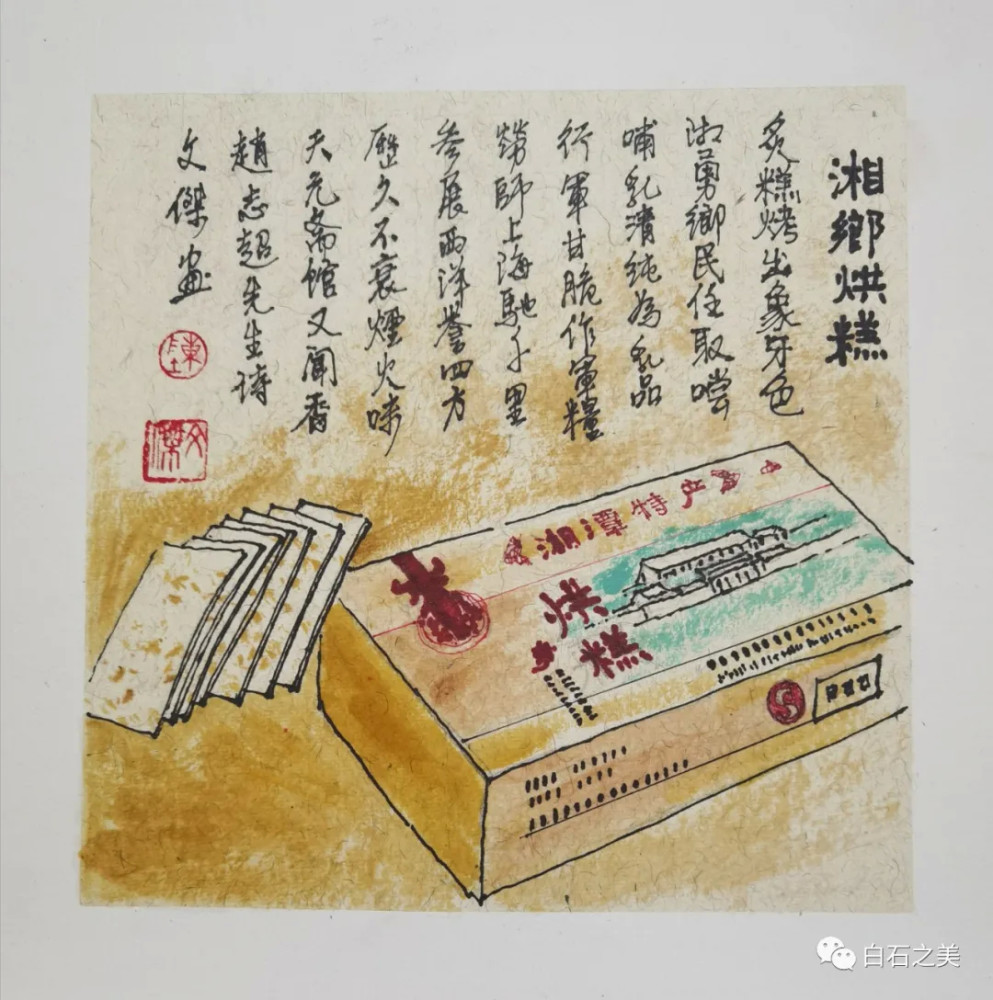 湘鄉烘糕
炙糕烤出象牙色
湘勇鄉民任取嘗
哺乳清純為乳品
行軍甘脆作軍糧
勞師上海馳千里
參展西洋譽四方
歷久不衰煙火味
天元斋館又聞香
趙志超先生詩
文傑畫
陳
文傑
湘潭特产
烘
糕
白石之美